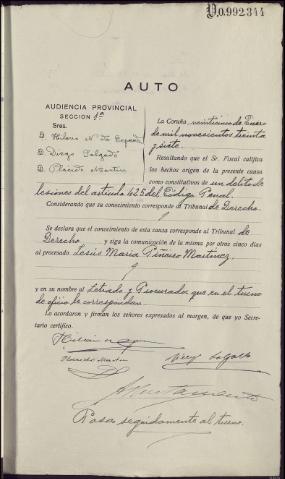 P.0.992344
AUTO
AUDIENCIA PROVINCIAL
SECCION 1ª
Sres.
D. Hilario Nº de Cepeda
D. Diego Salgado
D. Plácido Martin
La Coruña veinticinco de Enero
de mil novecientos treinta
y siete.
Resultando que el Sr. Fiscal califica
los hechos origen de la presente causa
como constitutivos de un delito de
lesiones del artículo 425 del Código Penal.
Considerando que su conocimiento corresponde al Tribunal de Derecho.
Se declara que el conocimiento de esta causa corresponde al Tribunal de
Derecho y siga la comunicación de la misma por otros cinco días
al procesado Jesús María Piñeiro Martinez,
y en su nombre al Letrado y Procurador que en el turno
de oficio le correspondan.
Lo acordaron y firman los señores expresados al margen, de que yo Secretario certifico.
Pasa seguidamente al turno.